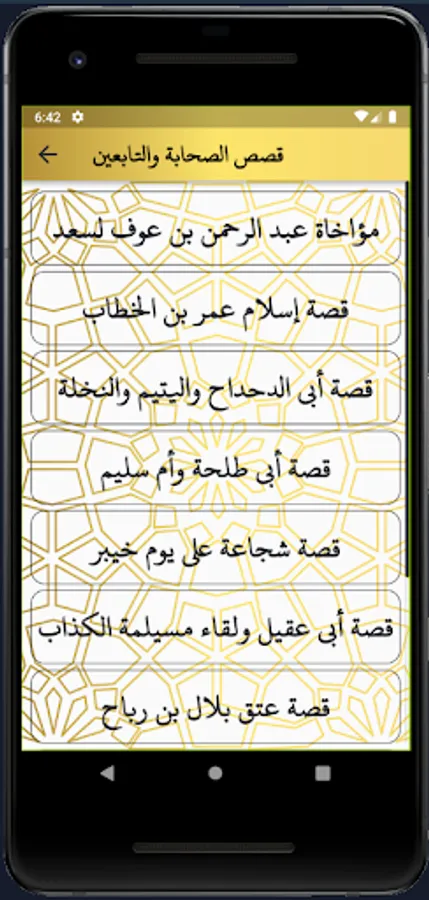 6:42
قصص الصحابة والتابعين
مؤاخاة عبد الرحمن بن عوف لسعد
قصة إسلام عمر بن الخطاب
قصة أبى الدحداح واليتيم والنخلة
قصة أبى طلحة وأم سليم
قصة شجاعة على يوم خيبر
قصة أبى عقيل ولقاء مسيلمة الكذاب
قصة عتق بلال بن رباح